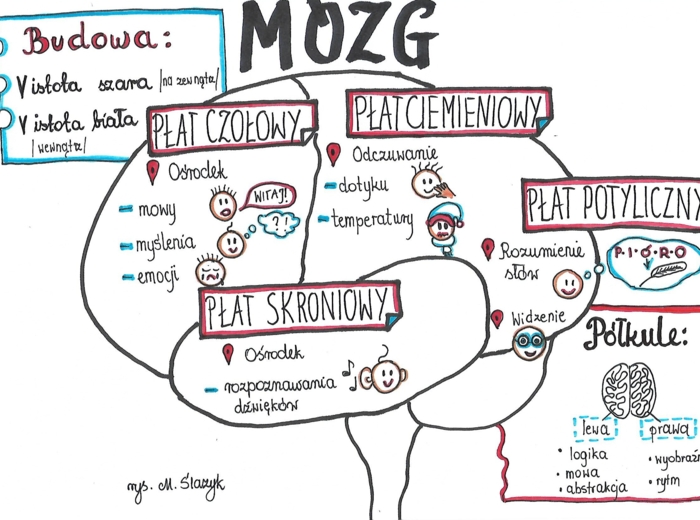 MÓZG
Budowa:
istota szara /na zewnątrz/
istota biała
/wewnątrz/
PŁAT CZOŁOWY
Ośrodek
mowy
myślenia
emocji
WITAJ!
?!
PŁAT CIEMIENIOWY
Odczuwanie
dotyku
temperatury
PŁAT POTYLICZNY
Rozumienie
słów
P·I·Ó·R·O
Widzenie
PŁAT SKRONIOWY
Ośrodek
rozpoznawania
dźwięków
Półkule:
lewa
• logika
• mowa
• abstrakcja
prawa
• wyobraź
• rytm
rys. M. Ślazyk